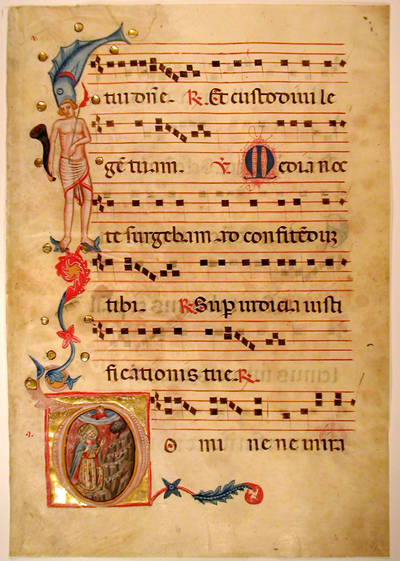 tui dn̄e. ℟. Et custodiui le
gē tuam. ℣. Media noc
te surgebam ad confitēduz
tibi. ℟. Sup iudicia iusti
ficationis tue. ℟.
D o mi ne ne in ira